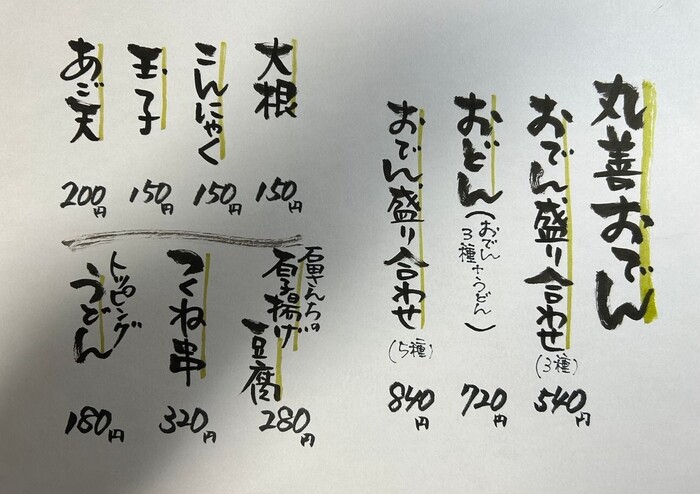 丸善おでん
おでん盛り合わせ(3種) 540円
おどん(おでん3種+うどん) 720円
おでん盛り合わせ(5種) 840円
大根 150円
こんにゃく 150円
玉子 150円
あご天 200円
石田さんちの
厚揚げ豆腐 280円
つくね串 320円
トッピング
うどん 180円